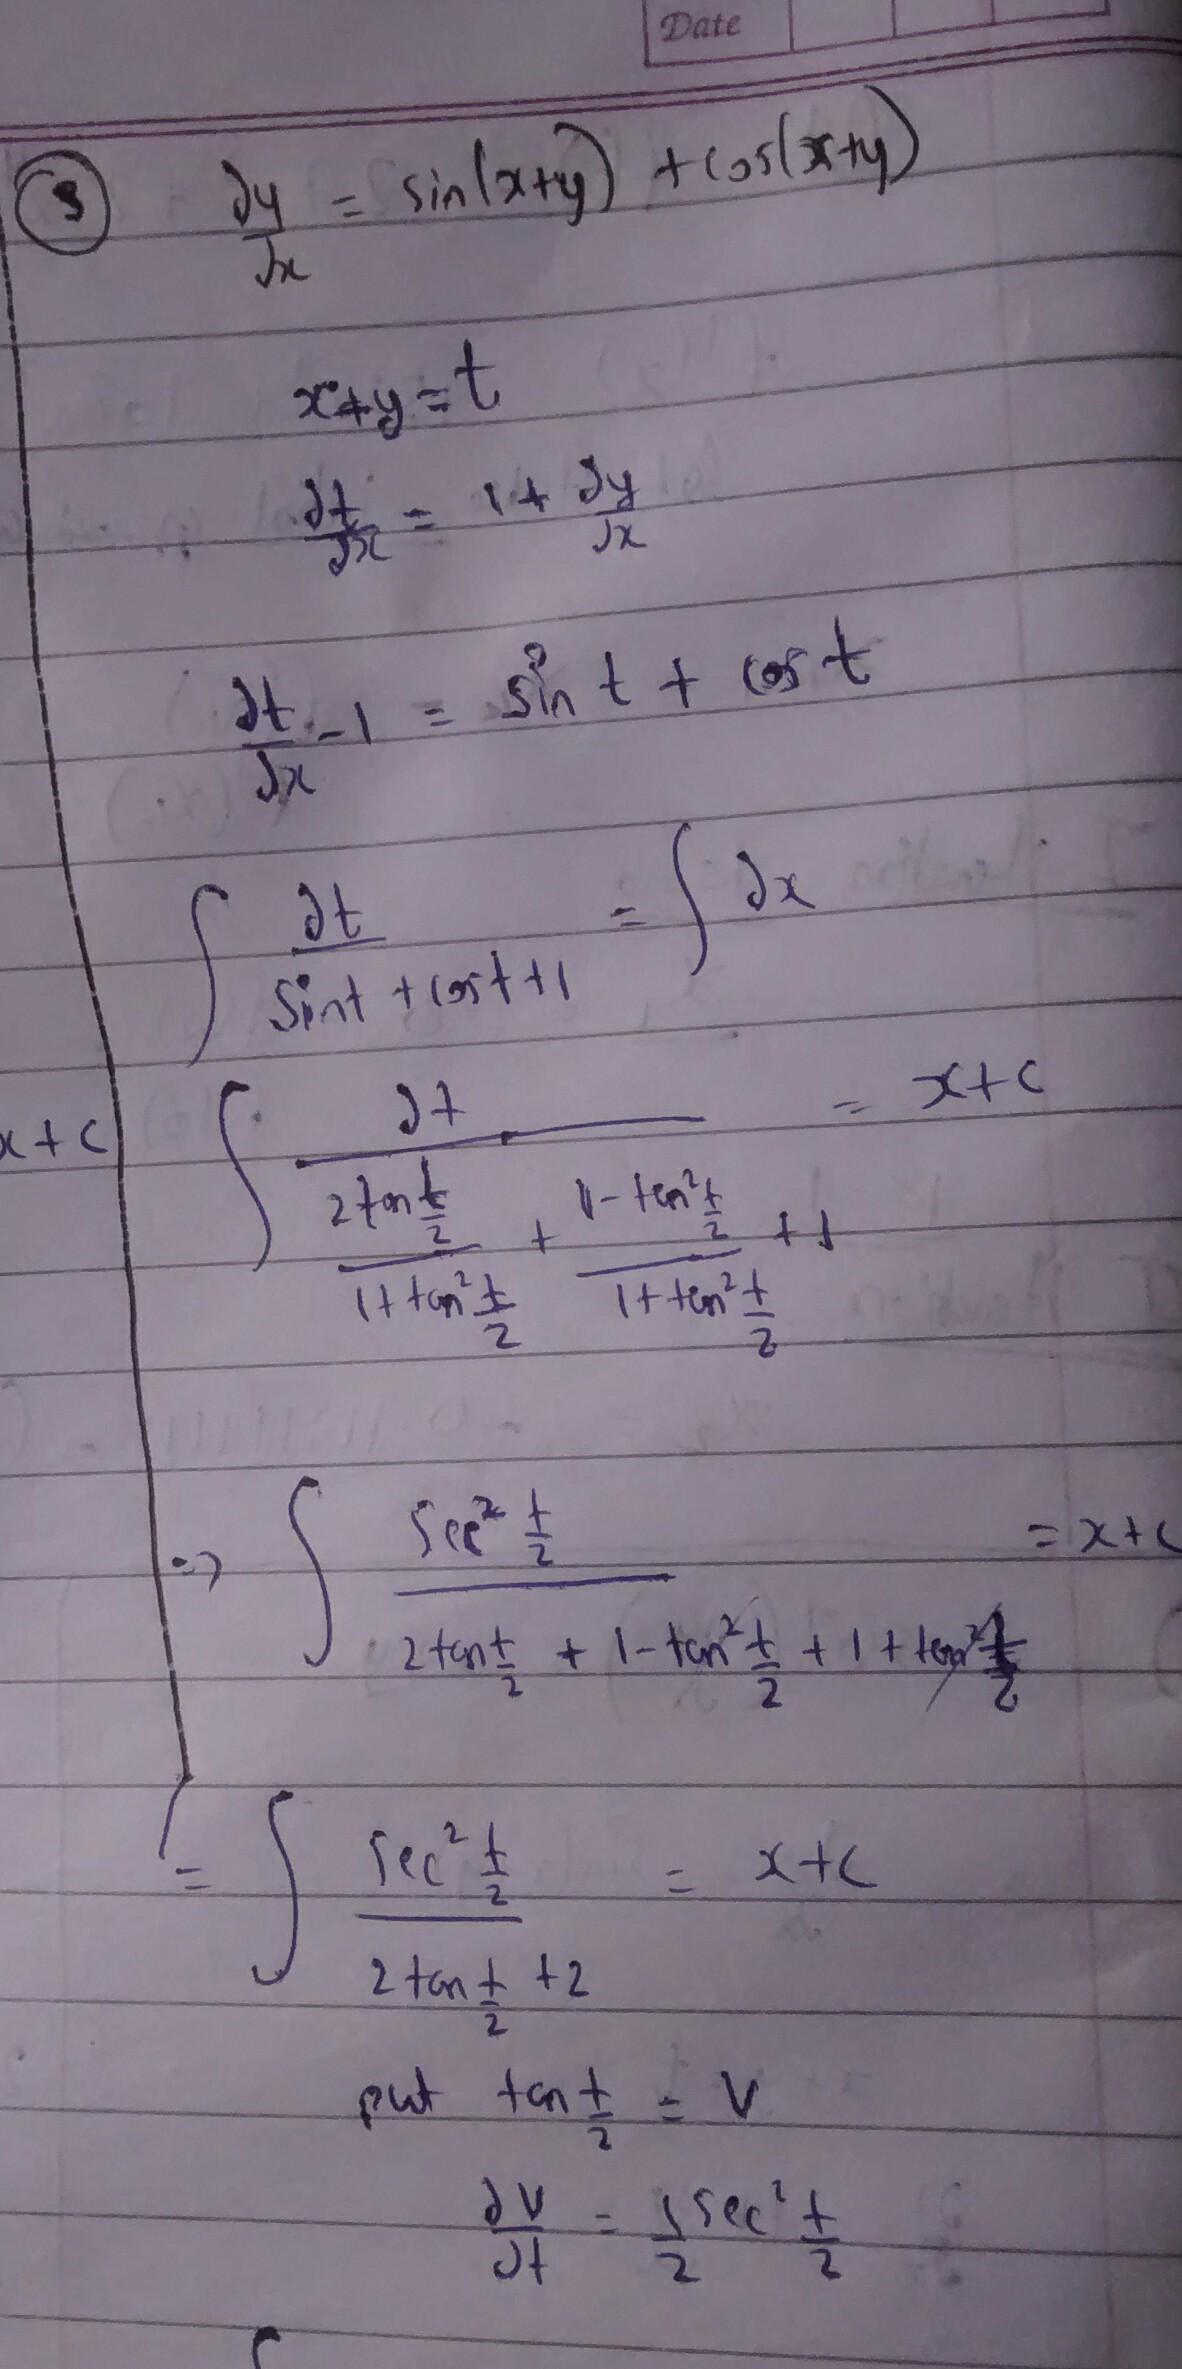 Date
③ dy/dx = sin(x+y) + cos(x+y)
x+y = t
dt/dx = 1 + dy/dx
dt/dx - 1 = sin t + cos t
∫ dt/(sint + cost + 1) = ∫ dx
x + c
∫ dt/((2tan t/2)/(1+tan² t/2) + (1-tan² t/2)/(1+tan² t/2) + 1) = x + c
=> ∫ (sec² t/2)/(2tan t/2 + 1 - tan² t/2 + 1 + tan² t/2) = x + c
= ∫ (sec² t/2)/(2tan t/2 + 2) = x + c
put tan t/2 = V
dV/dt = 1/2 sec² t/2
∫